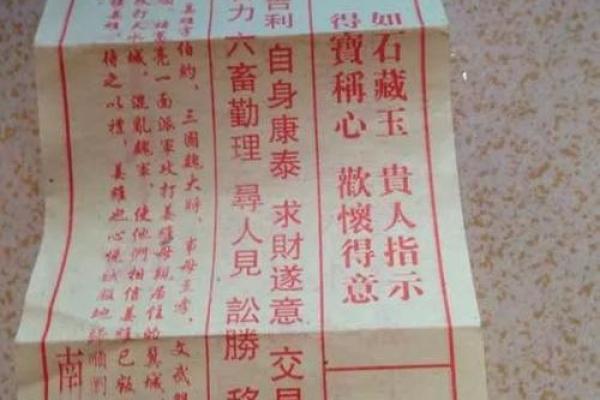 如石藏玉 貴人指示
得寶稱心 歡懷得意
吉利 自身康泰 求財遂意 交
力 六畜勤理 尋人見 訟勝
姜維字伯約,三國魏大將,事母至孝,文武
亮一面派軍攻打姜維母親居住的冀城
攻打天水城,混亂魏軍,使他們相信姜維已叛
姜維,待之以禮,姜維也心悅誠服地歸順劉
南